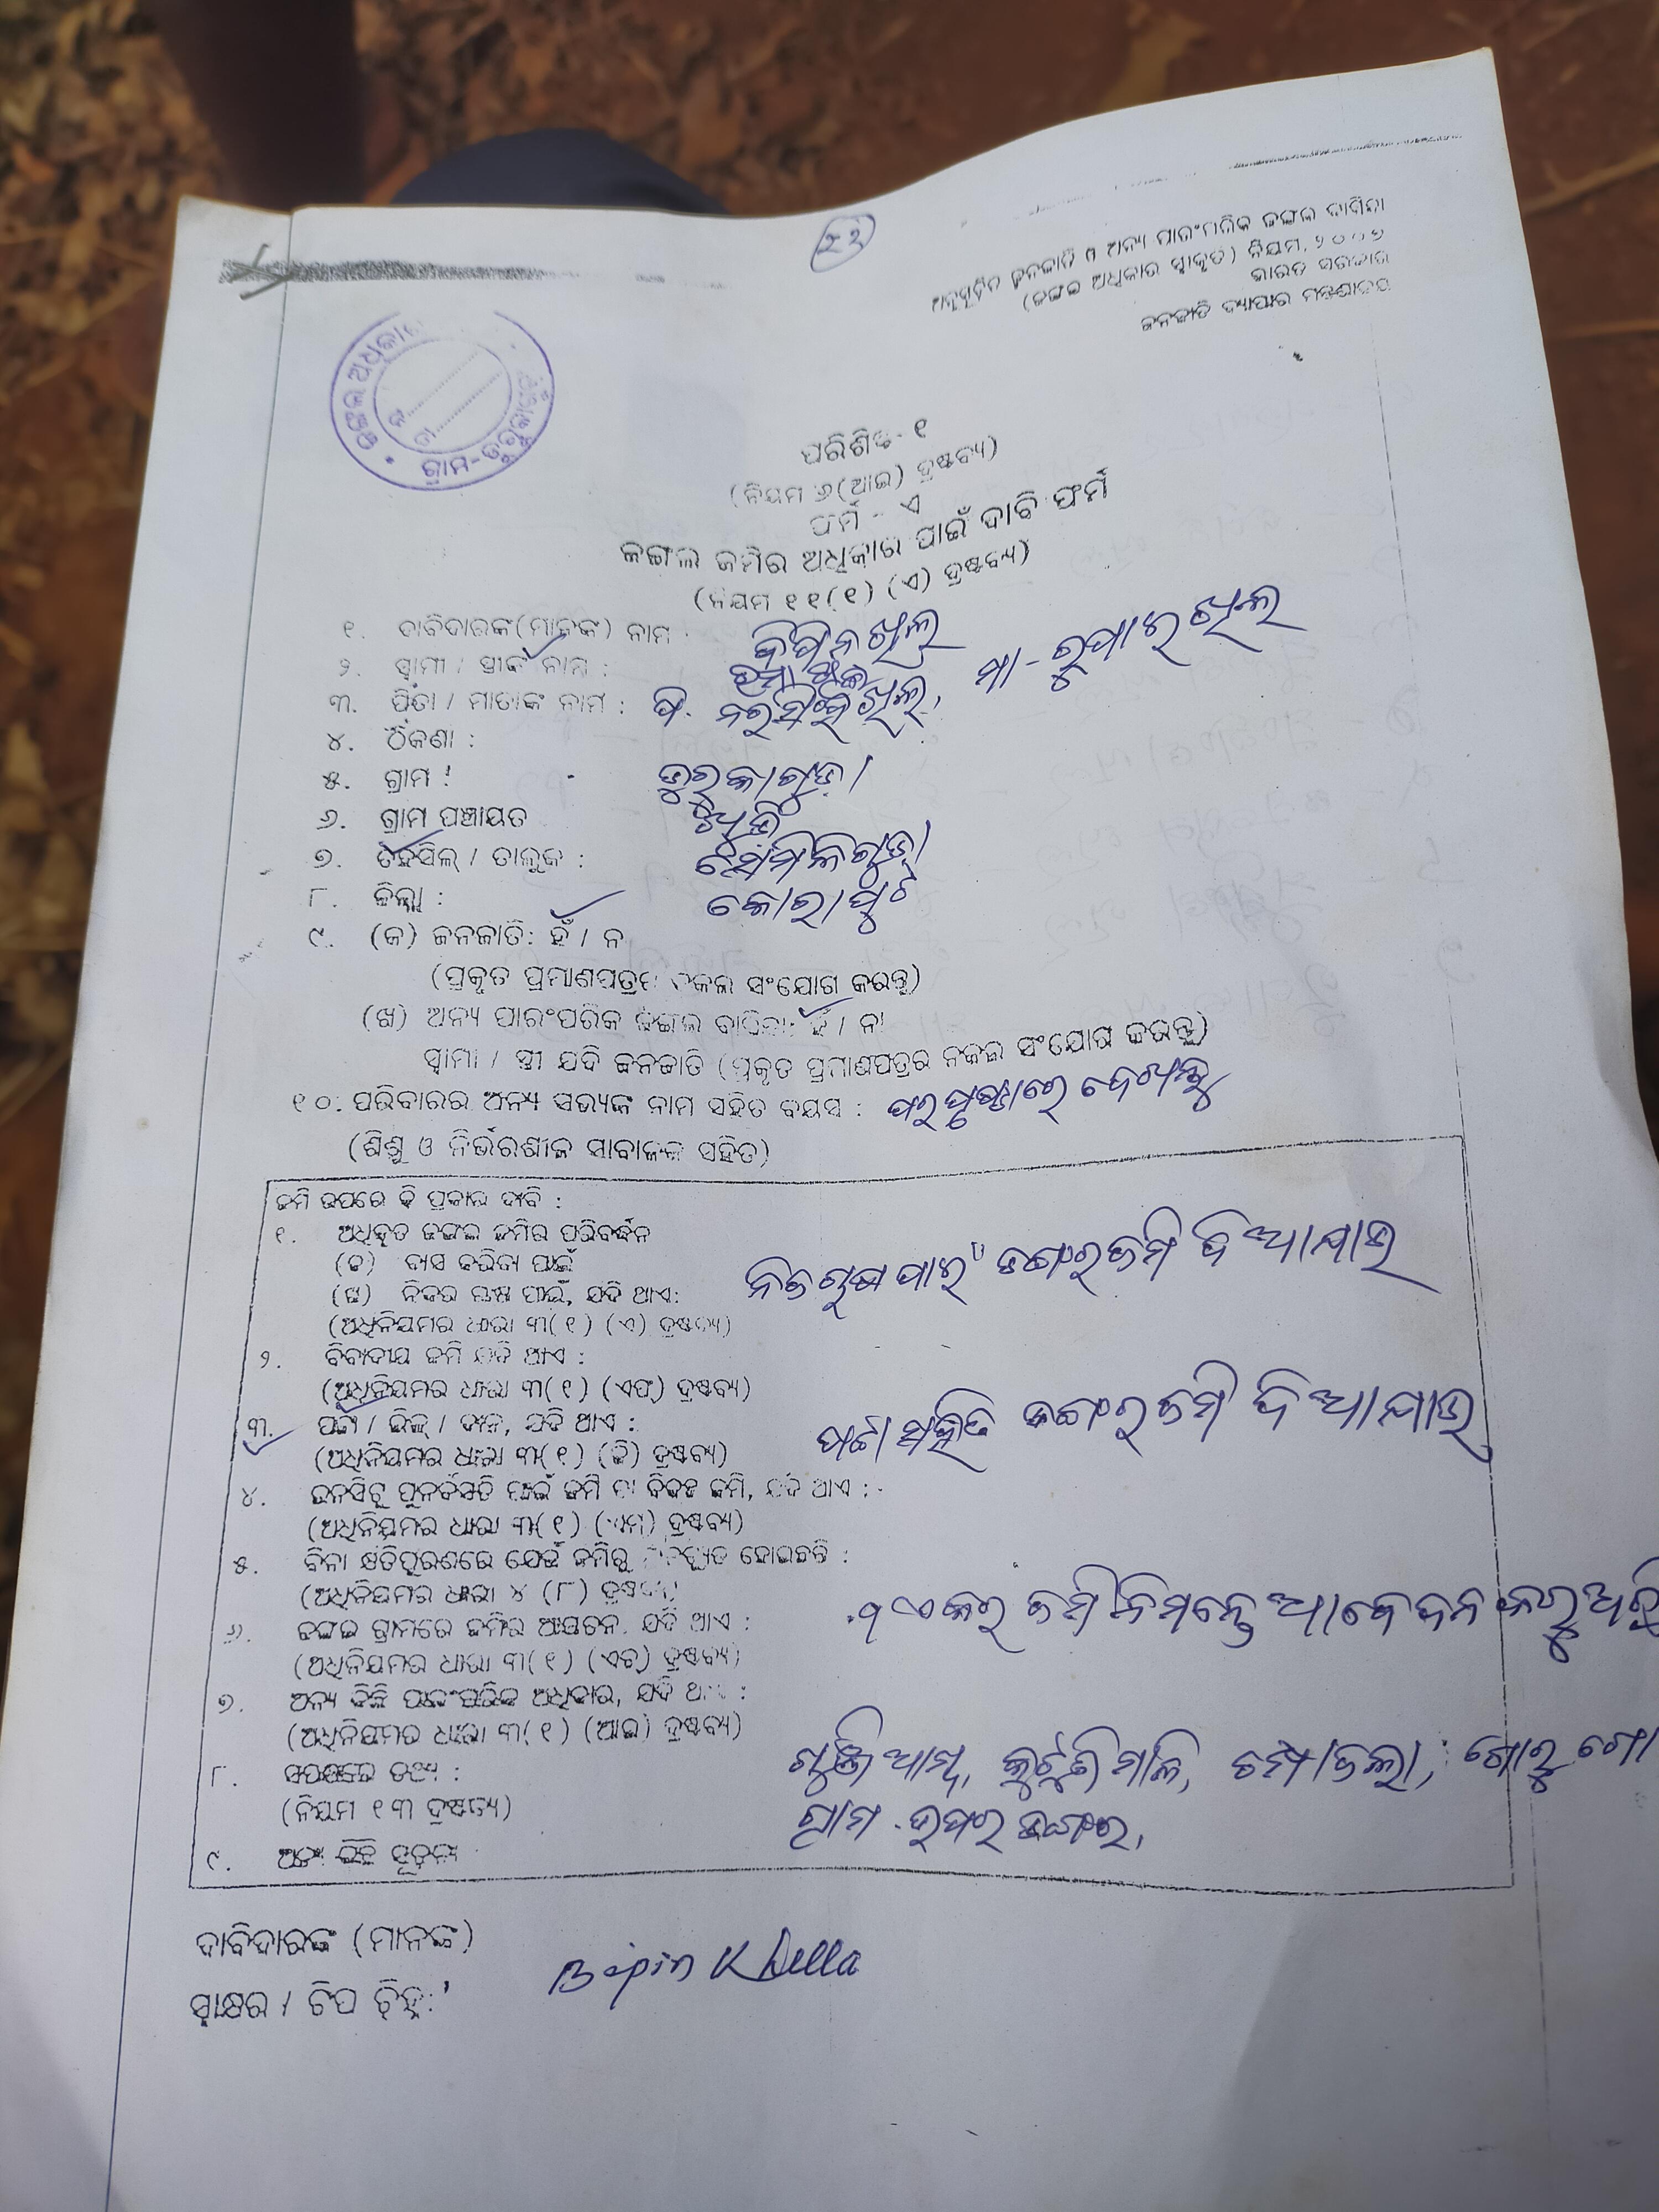 ୨୨
ଅନୁସୂଚିତ ଜନଜାତି ଓ ଅନ୍ୟ ପାରଂପରିକ ଜଙ୍ଗଲ ବାସିନ୍ଦା
(ଜଙ୍ଗଲ ଅଧିକାର ସ୍ୱୀକୃତି) ନିୟମ, ୨୦୦୭
ଭାରତ ସରକାର
ଜନଜାତି ବ୍ୟାପାର ମନ୍ତ୍ରଣାଳୟ
ଜଙ୍ଗଲ ଅଧିକାର
ଗ୍ରାମ-ତୁରୁକାଗୁଡ଼ା
ପରିଶିଷ୍ଟ - ୧
(ନିୟମ ୬(ଆଇ) ଦ୍ରଷ୍ଟବ୍ୟ)
ଫର୍ମ - ଏ
ଜଙ୍ଗଲ ଜମିର ଅଧିକାର ପାଇଁ ଦାବି ଫର୍ମ
(ନିୟମ ୧୧(୧) (ଏ) ଦ୍ରଷ୍ଟବ୍ୟ)
୧. ଦାବିଦାରଙ୍କ(ମାନଙ୍କ) ନାମ : ବିପିନ ଖିଲ
୨. ସ୍ୱାମୀ / ସ୍ତ୍ରୀଙ୍କ ନାମ :
୩. ପିତା / ମାତାଙ୍କ ନାମ : ପି. ନରସିଂହ ଖିଲ, ମା - ରୁପାଇ ଖିଲ
୪. ଠିକଣା :
୫. ଗ୍ରାମ : ତୁରୁକାଗୁଡ଼ା
୬. ଗ୍ରାମ ପଞ୍ଚାୟତ
୭. ତହସିଲ୍ / ତାଲୁକ : ସେମିଳିଗୁଡ଼ା
୮. ଜିଲ୍ଲା : କୋରାପୁଟ
୯. (କ) ଜନଜାତି: ହଁ / ନା
(ପ୍ରକୃତ ପ୍ରମାଣପତ୍ରର ନକଲ ସଂଯୋଗ କରନ୍ତୁ)
(ଖ) ଅନ୍ୟ ପାରଂପରିକ ଜଙ୍ଗଲ ବାସିନ୍ଦା: ହଁ / ନା
ସ୍ୱାମୀ / ସ୍ତ୍ରୀ ଯଦି ଜନଜାତି (ପ୍ରକୃତ ପ୍ରମାଣପତ୍ରର ନକଲ ସଂଯୋଗ କରନ୍ତୁ)
୧୦. ପରିବାରର ଅନ୍ୟ ସଭ୍ୟଙ୍କ ନାମ ସହିତ ବୟସ : ପର ପୃଷ୍ଠାରେ ଦେଖନ୍ତୁ
(ଶିଶୁ ଓ ନିର୍ଭରଶୀଳ ସାବାଳକ ସହିତ)
ଜମି ଉପରେ କି ପ୍ରକାର ଦାବି :
୧. ଅଧିକୃତ ଜଙ୍ଗଲ ଜମିର ପରିବର୍ଦ୍ଧନ
(କ) ବାସ କରିବା ପାଇଁ
(ଖ) ନିଜର ଚାଷ ପାଇଁ, ଯଦି ଥାଏ: ନିଜ ଚାଷ ପାଇଁ ଜଙ୍ଗଲ ଜମି ଦିଆଯାଉ
(ଅଧିନିୟମର ଧାରା ୩(୧) (ଏ) ଦ୍ରଷ୍ଟବ୍ୟ)
୨. ବିବାଦୀୟ ଜମି ଯଦି ଥାଏ :
(ଅଧିନିୟମର ଧାରା ୩(୧) (ଏଫ୍) ଦ୍ରଷ୍ଟବ୍ୟ)
୩. ପଟ୍ଟା / ଲିଜ୍ / ଦାନ, ଯଦି ଥାଏ : ପଟ୍ଟା ସହିତ ଜଙ୍ଗଲ ଜମି ଦିଆଯାଉ
(ଅଧିନିୟମର ଧାରା ୩(୧) (ଜି) ଦ୍ରଷ୍ଟବ୍ୟ)
୪. ଇନସିଟୁ ପୁନର୍ବସତି ପାଇଁ ଜମି ବା ବିକଳ୍ପ ଜମି, ଯଦି ଥାଏ :
(ଅଧିନିୟମର ଧାରା ୩(୧) (ଏମ୍) ଦ୍ରଷ୍ଟବ୍ୟ)
୫. ବିନା କ୍ଷତିପୂରଣରେ ଯେଉଁ ଜମିରୁ ହୋଇଛନ୍ତି :
(ଅଧିନିୟମର ଧାରା ୪ (୮) ଦ୍ରଷ୍ଟବ୍ୟ)
୬. ଜଙ୍ଗଲ ଗ୍ରାମରେ ଜମିର ଆୟତନ, ଯଦି ଥାଏ : ଏକର ଜମି ନିମନ୍ତେ ଆବେଦନ କରୁଅଛି
(ଅଧିନିୟମର ଧାରା ୩(୧) (ଏଚ୍) ଦ୍ରଷ୍ଟବ୍ୟ)
୭. ଅନ୍ୟ କିଛି ପାରଂପରିକ ଅଧିକାର, ଯଦି ଥାଏ :
(ଅଧିନିୟମର ଧାରା ୩(୧) (ଆଇ) ଦ୍ରଷ୍ଟବ୍ୟ)
୮. ସପକ୍ଷରେ ତଥ୍ୟ :
(ନିୟମ ୧୩ ଦ୍ରଷ୍ଟବ୍ୟ)
ଗ୍ରାମ
୯. ଅନ୍ୟ କିଛି ସୂଚନା
ଦାବିଦାରଙ୍କ (ମାନଙ୍କ)
ସ୍ୱାକ୍ଷର / ଟିପ ଚିହ୍ନ: Bipin Khilla